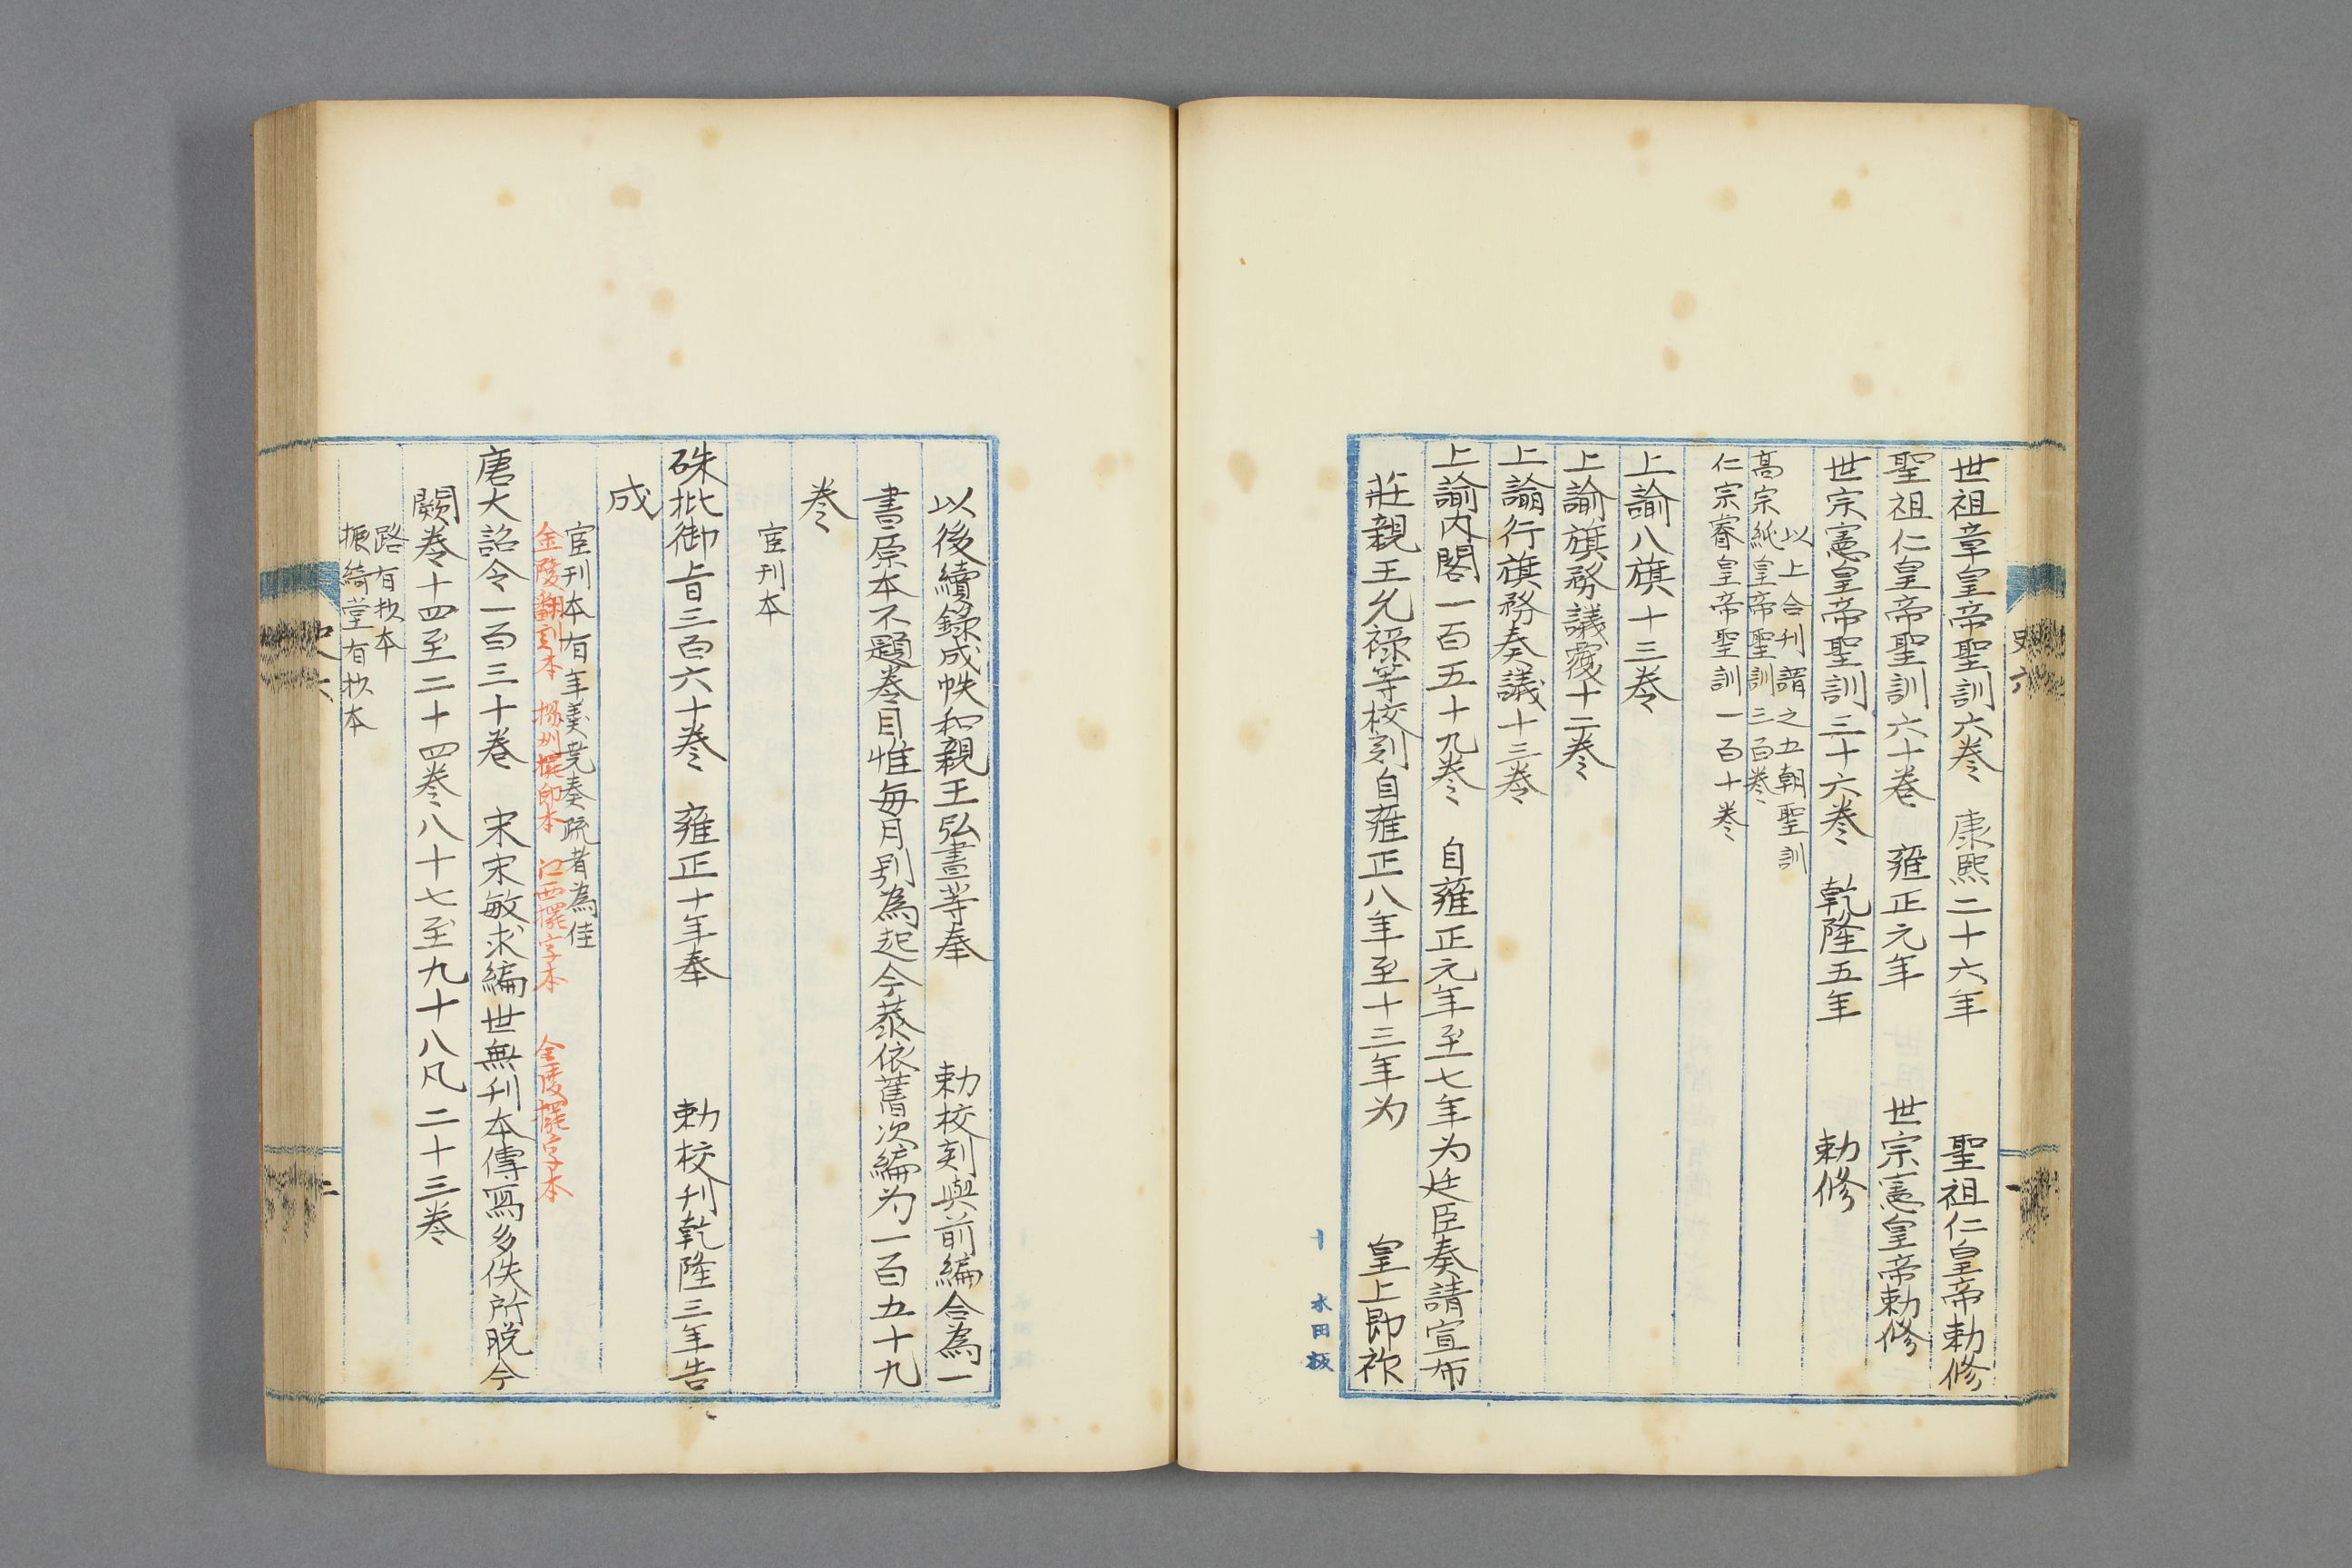 世祖章皇帝聖訓六卷　康熙二十六年　聖祖仁皇帝勅修
聖祖仁皇帝聖訓六十卷　雍正元年　世宗憲皇帝勅修
世宗憲皇帝聖訓三十六卷　乾隆五年　勅修
以上合刊謂之五朝聖訓
高宗純皇帝聖訓三百卷
仁宗睿皇帝聖訓一百十卷
上諭八旗十三卷
上諭旗務議覆十二卷
上諭行旗務奏議十三卷
上諭內閣一百五十九卷　自雍正元年至七年为廷臣奏請宣布
莊親王允祿等校刻自雍正八年至十三年为　皇上即祚
十　水田板
以後續錄成帙和親王弘晝等奉　勅校刻與前編合為一
書原本不題卷目惟每月别為起今恭依舊次編为一百五十九
卷
官刊本
硃批御旨三百六十卷　雍正十年奉　勅校刊乾隆三年告
成
官刊本有年羹堯奏疏者為佳
金陵翻刻本　揚州摆印本　江西擺字本　金陵擺字本
唐大詔令一百三十卷　宋宋敏求編世無刊本傳寫多佚所脫今
闕卷十四至二十四卷八十七至九十八凡二十三卷
路有抄本
振綺堂有抄本
史六